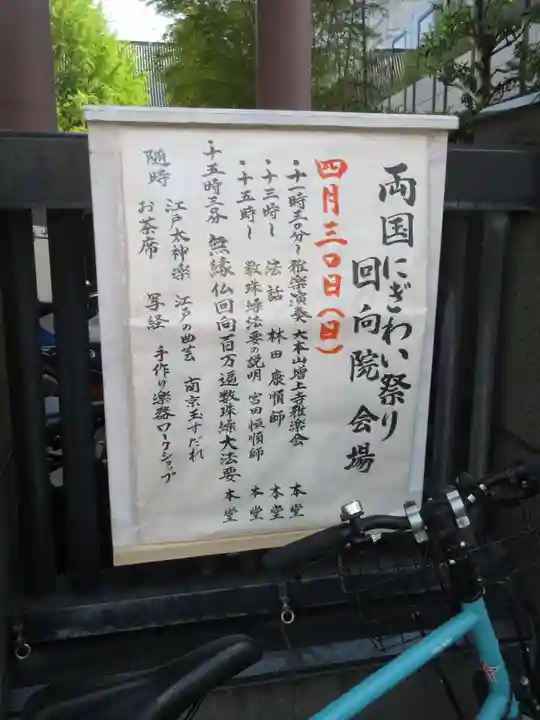 両国にぎわい祭り
回向院 会場
四月三〇日(日)
・十一時三〇分〜雅楽演奏 大本山増上寺雅楽会 本堂
・十三時〜 法話 林田康順師 本堂
・十五時〜 数珠繰法要の説明 宮田恒順師 本堂
・十五時三〇分 無縁仏回向百万遍数珠繰大法要 本堂
随時 江戸太神楽 江戸の曲芸 南京玉すだれ
お茶席 写経 手作り楽器ワークショップ